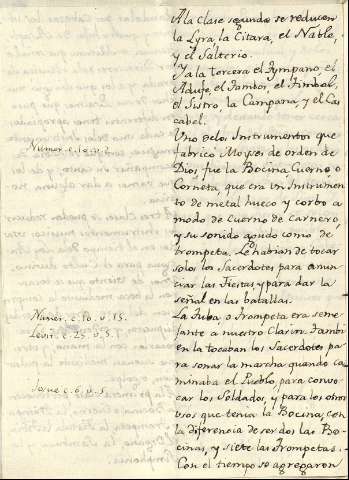 A la clase segunda se reducen
la Lyra la Citara, el Nable,
y el Salterio.
Y a la tercera el Tympano, el
Adufe, el Tambor, el Timbol,
el Sistro, la Campana, y el Cas
cabel.
Uno de los Instrumentos que
fabricó Moyses de orden de
Dios fue la Bocina, Cuerno, o
Corneta, que era un Instrumen
to de metal hueco y corbo a
modo de Cuerno de Carnero,
y su sonido agudo como de
trompeta. Le habian de tocar
solos los Sacerdotes para anun
ciar las Fiestas, y para dar la
señal en las batallas.
Numer. c. 10. v.
La Tuba o Trompeta era seme
jante a nuestro Clarin. Tambi
en la tocaban los Sacerdotes pa
ra sonar la marcha quando ca
minaba el Pueblo, para convo
car los Soldados, y para los otros
usos que tenia la Bocina, con
la diferencia de ser dos las Bo
cinas, y siete las Trompetas.
Con el tiempo se agregaron
Numer. c. 10. v. 15.
Levit. c. 25. v. 5.
Josue c. 6. v. 5.